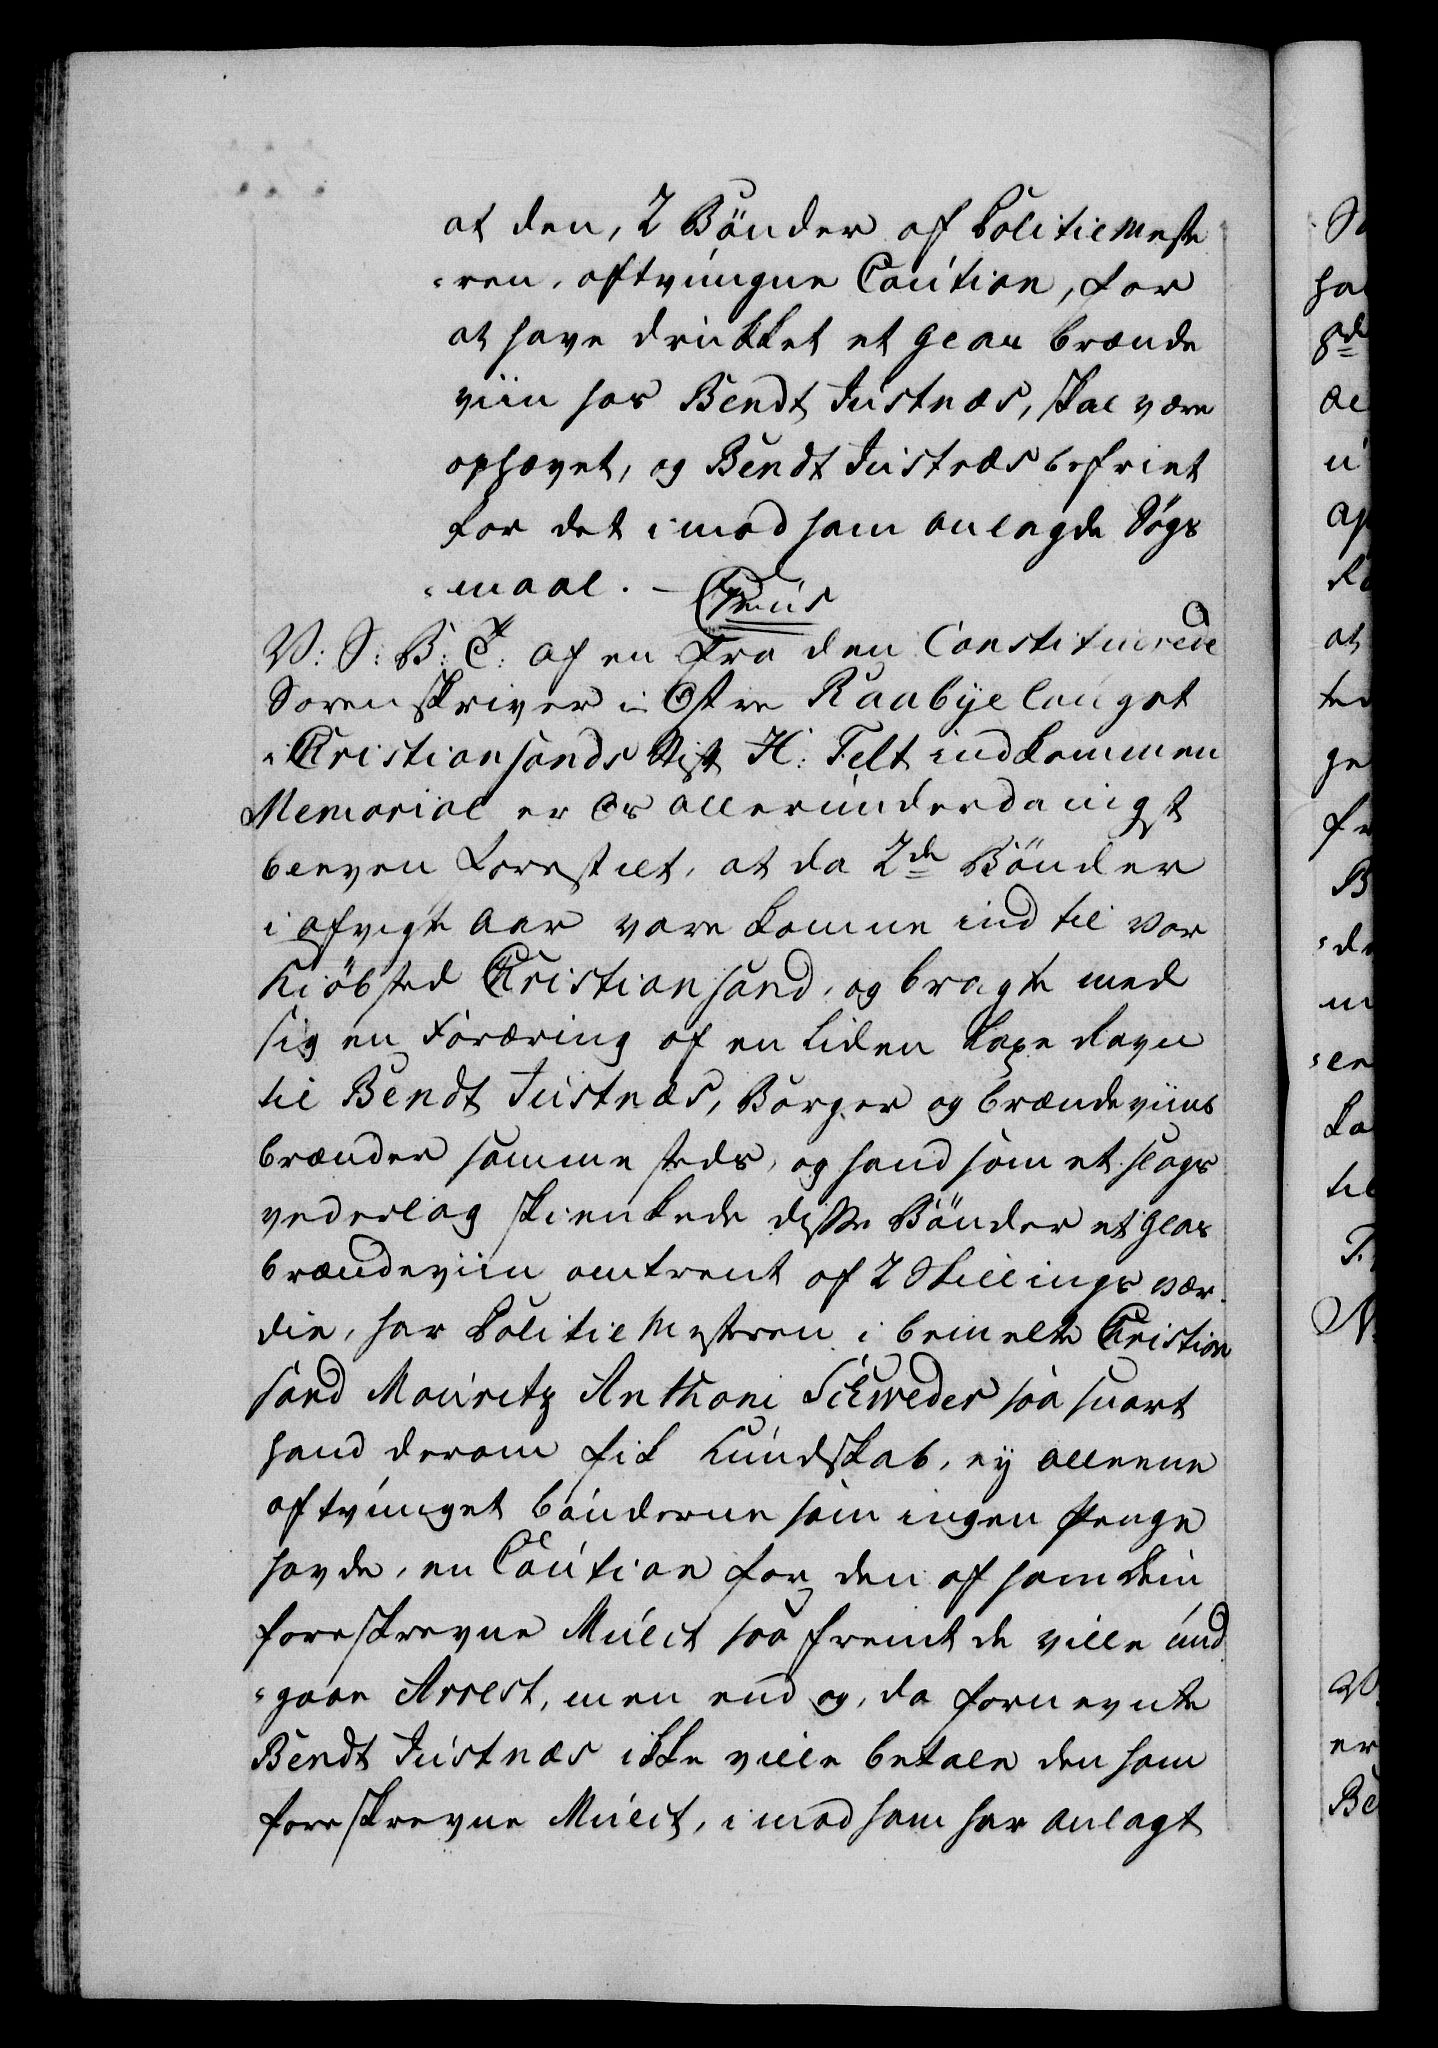 at den, 2 Bönder af Politiemeste
=ren, aftvungne Caution, for
at have drukket et glas Brænde
viin hos Bendt Justnæs, skal være
ophævet, og Bendt Justnæs befriet
for det imod ham anlagde Søgs
=maal. –
V: S: B: T: af en fra den Constituerede
Sorenskriver i Östre Raabÿelauget
i Christiansands Stift H: Telt indkommen
Memorial er Os allerunderdanigst
bleven forestilt, at da 2de Bönder
i afvigte Aar vare komne ind til vor
Kiöbsted Christiansand, og bragte med
sig en Foræring af en liden Laxe Ravn
til Bendt Justnæs, Borger og brændeviins
brænder samme steds, og hand som et slags
vederlag skienkede disse Bönder et glas
brændeviin omtrent af 2 Skillings vær-
die, har Politiemesteren i bemelte Christian
sand Mouritz Anthoni Schweder saa snart
hand derom fik Kundskab, eÿ alleene
aftvunget bönderne som ingen Penge
havde, en Caution for den af ham dem
foreskrevne Mulct saa fremt de ville und
=gaae Arrest, men end og, da fornevnte
Bendt Justnæs ikke ville betale den ham
foreskrevne Mulct, imod ham har anlagt